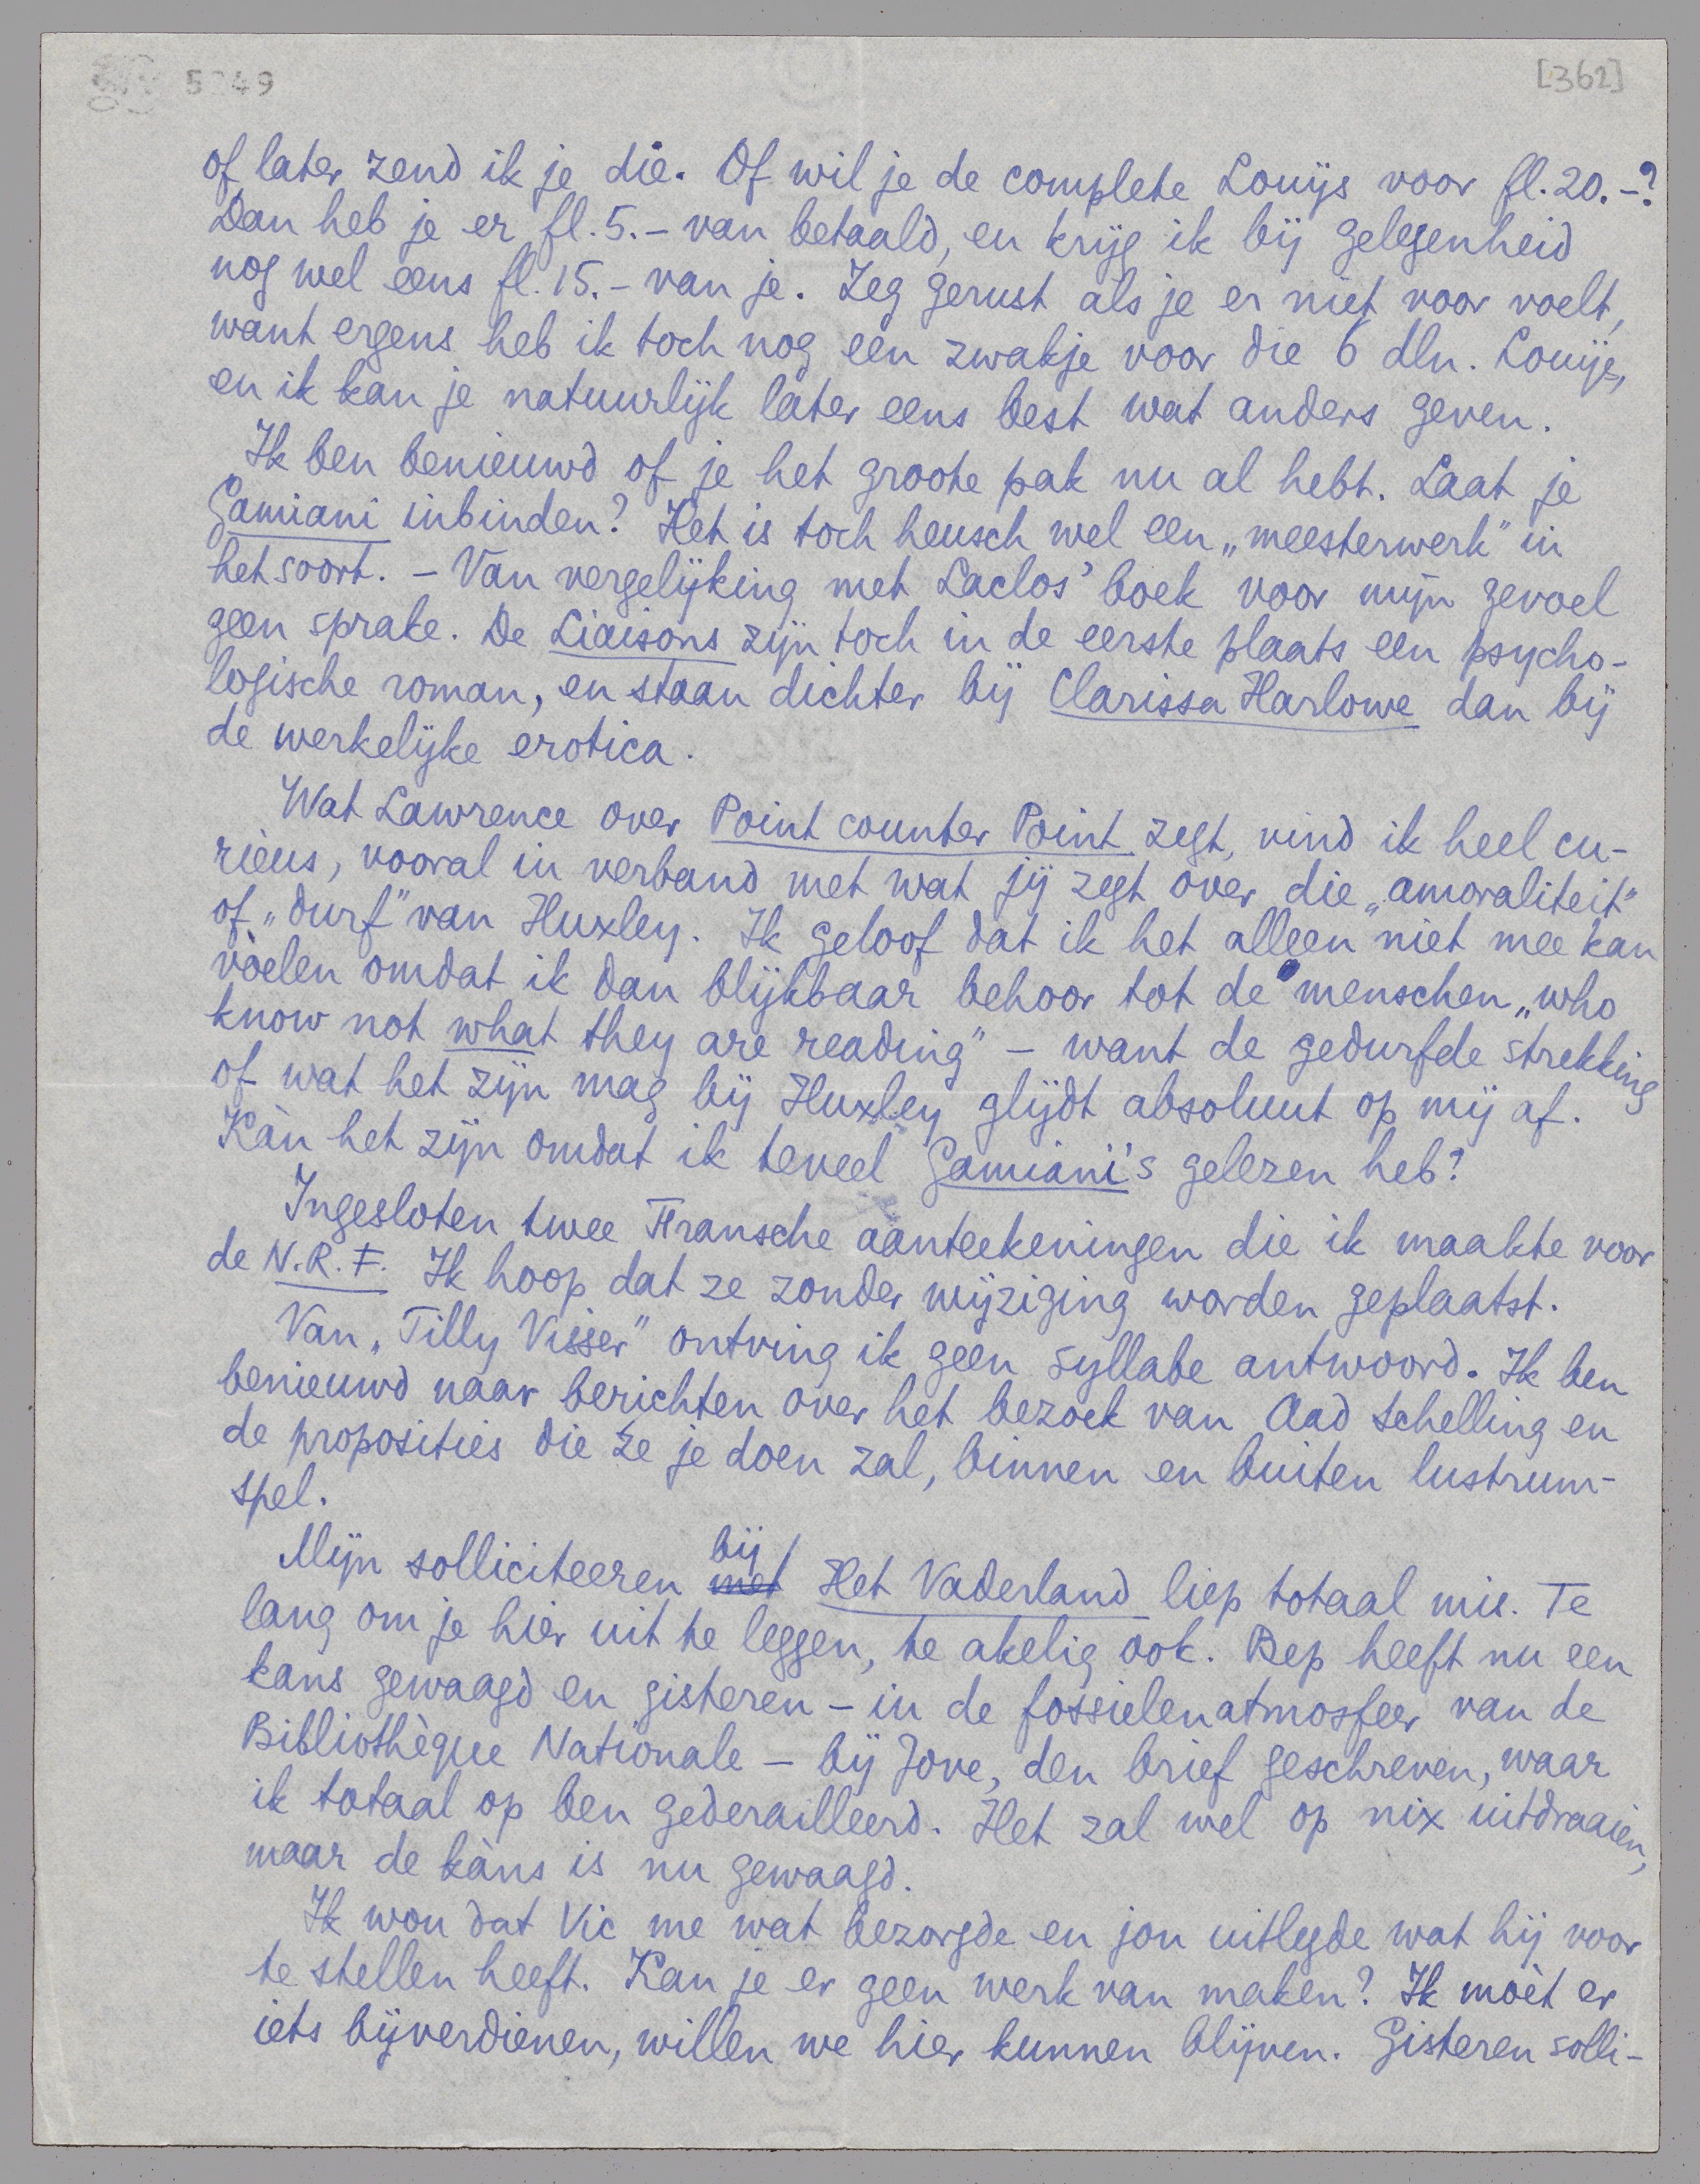 [362]
of later zend ik je die. Of wil je de complete Louÿs voor fl. 20.-?
Dan heb je er fl. 5.- van betaald, en krijg ik bij gelegenheid
nog wel eens fl. 15.- van je. Zeg gerust als je er niet voor voelt,
want ergens heb ik toch nog een zwakje voor die 6 dln. Louÿs,
en ik kan je natuurlijk later eens best wat anders geven.
Ik ben benieuwd of je het groote pak nu al hebt. Laat je
Gamiani inbinden? Het is toch heusch wel een „meesterwerk” in
het soort. – Van vergelijking met Laclos’ boek voor mijn gevoel
geen sprake. De Liaisons zijn toch in de eerste plaats een psycho-
logische roman, en staan dichter bij Clarissa Harlowe dan bij
de werkelijke erotica.
Wat Lawrence over Point counter Point zegt, vind ik heel cu-
rieus, vooral in verband met wat jij zegt over die „amoraliteit”
of „durf” van Huxley. Ik geloof dat ik het alleen niet mee kan
vòelen omdat ik dan blijkbaar behoor tot de menschen „who
know not what they are reading” – want de gedurfde strekking
of wat het zijn mag bij Huxley glijdt absoluut op mij af.
Kàn het zijn omdat ik teveel Gamiani’s gelezen heb?
Ingesloten twee Fransche aanteekeningen die ik maakte voor
de N.R.F. Ik hoop dat ze zonder wijziging worden geplaatst.
Van „Tilly Visser” ontving ik geen syllabe antwoord. Ik ben
benieuwd naar berichten over het bezoek van Aad Schelling en
de proposities die ze je doen zal, binnen en buiten lustrum-
spel.
Mijn solliciteeren met bij Het Vaderland liep totaal mis. Te
lang om je hier uit te leggen, te akelig ook. Bep heeft nu een
kans gewaagd en gisteren – in de fossielenatmosfeer van de
Bibliothèque Nationale – bij Jove, den brief geschreven, waar
ik totaal op ben gederailleerd. Het zal wel op nix uitdraaien,
maar de kàns is nu gewaagd.
Ik wou dat Vic me wat bezorgde en jou uitlegde wat hij voor
te stellen heeft. Kan je er geen werk van maken? Ik mòet er
iets bijverdienen, willen we hier kunnen blijven. Gisteren solli-